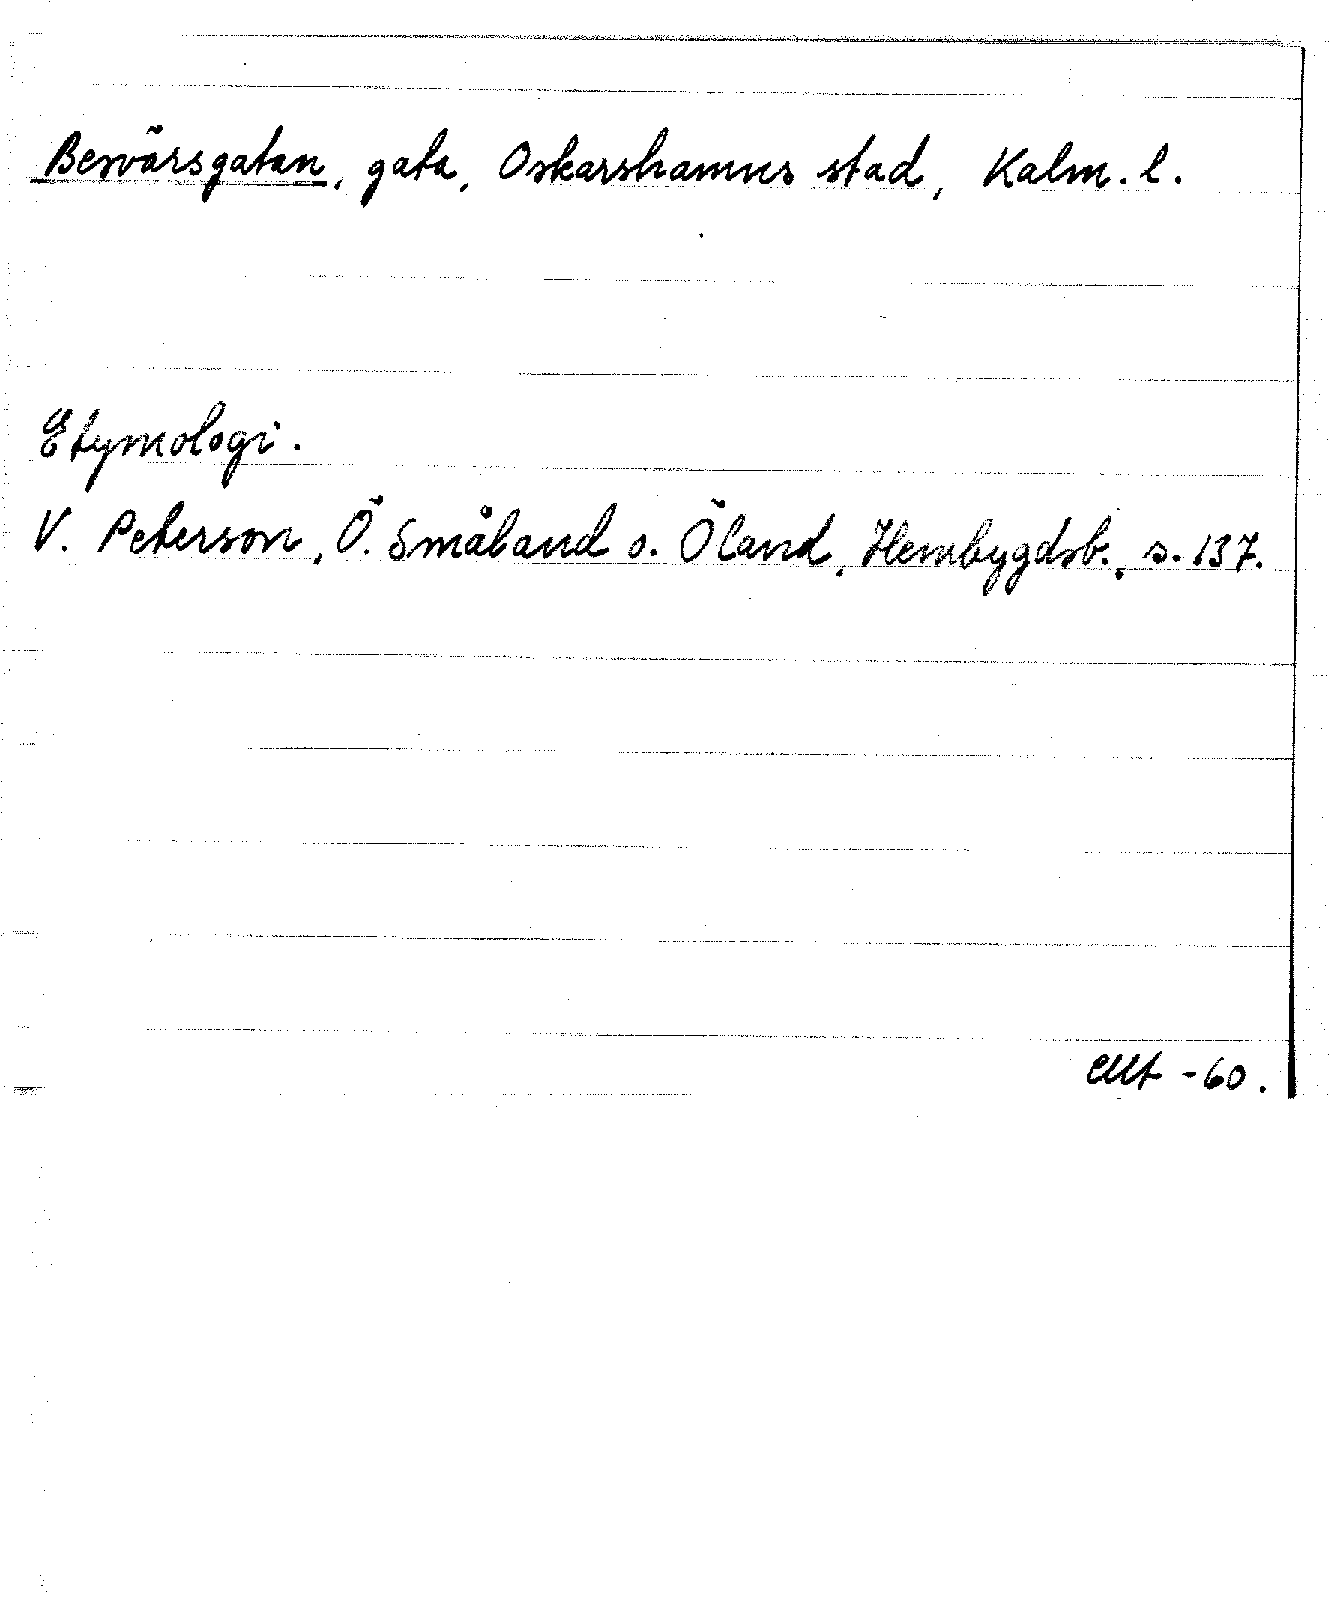 Bevärsgatan, gata, Oskarshamns stad, Kalm. l.
Etymologi.
V. Peterson, Ö. Småland o. Öland, Hembygdsb., s. 137.
-60.